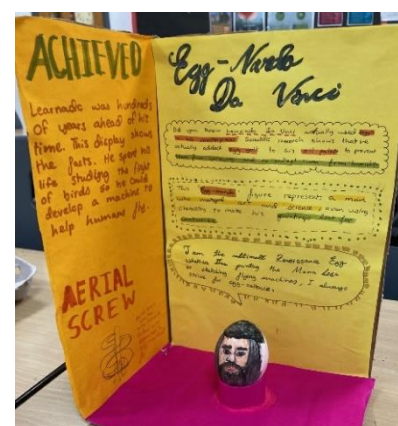 ACHIEVED
Learnadic was hundreds
of years ahead of his
time. This display shows
the facts. He spent his
life studying the flight
of birds so he could
develop a machine to
help humans fly.
AERIAL
SCREW
Egg-Nardo
Da Vinci
Did you know Leonardo da Vinci actually used egg
research shows that he
actually added to his to prevent
This figure represents a man
who merged art and science, even using
chemistry to make his paintings last for
centuries.
I am the ultimate Renaissance Egg
whether I'm painting the Mona Lisa
or sketching flying machines, I always
strive for egg-cellence.